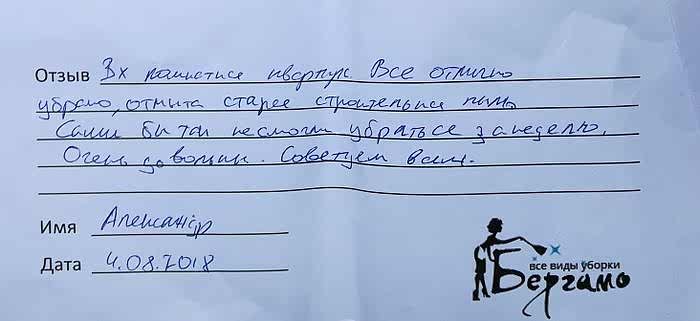 Отзыв Вх комнатная квартира. Все отлично
убрано, отмыта старее строительная пыль
Сами бы так несмогли убраться за неделю.
Очень довольны. Советуем вам.
Имя Александр
Дата 4.08.2018
все виды уборки
Бергамо